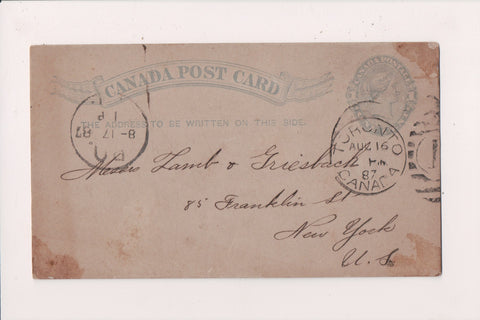 CANADA POST CARD
THE ADDRESS TO BE WRITTEN ON THIS SIDE
8-17 87
TORONTO
AUG 16
PM
87
CANADA
1
Messrs Lamb & Griesbach
85 Franklin St
New York
U.S.